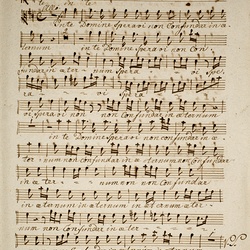 In te Domine speravi non confundar in a
ternum in te Domine speravi non con
fundar in aeternum spera vi spe
ravi spe ravi non non confundar in aeternum
in te Domine speravi non confundar in ae
ternum non confundar in aeternum confundar
in ae ter num non non confundar
in aeternum in aeternum in aeternum aeter
num non confundar in aeter
num